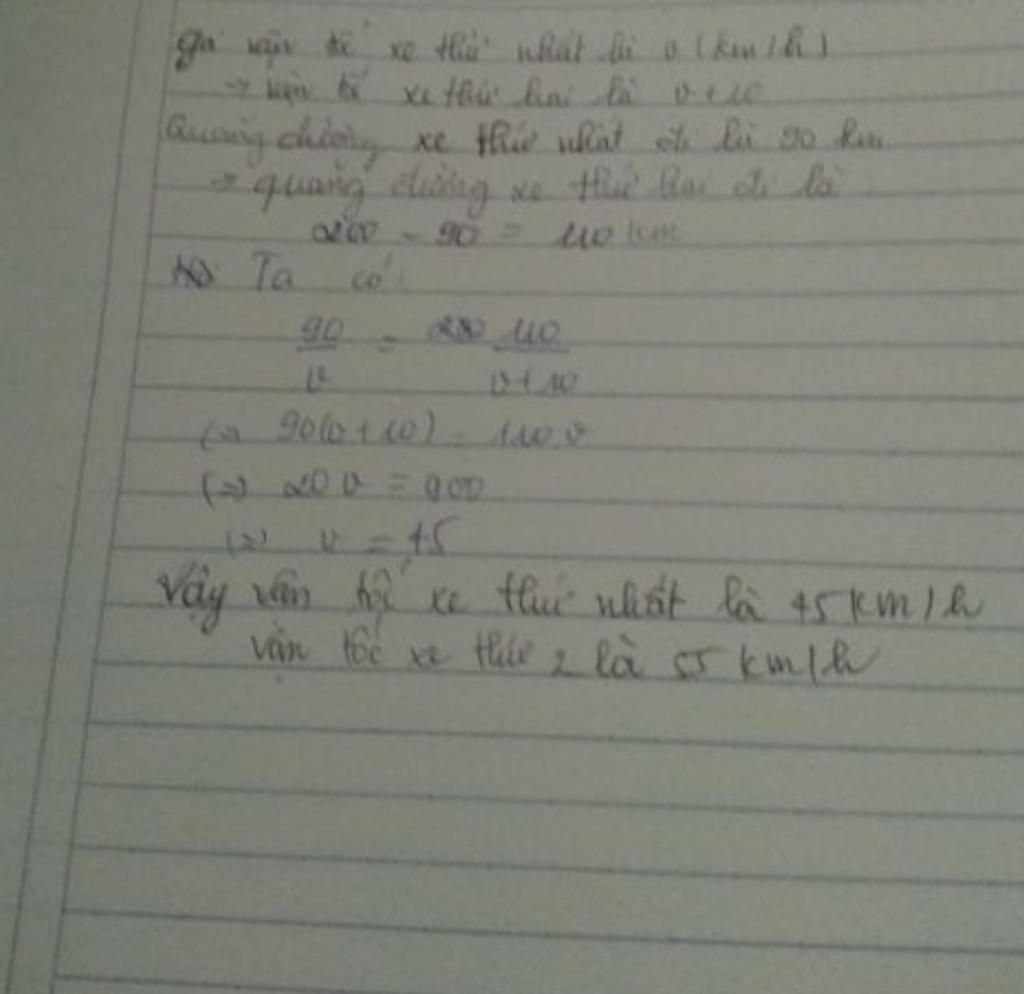 gọi vận tố xe thứ nhất là v (km/h)
→ vận tố xe thứ hai là v+10
Quãng đường xe thứ nhất đi là 90 km
→ quãng đường xe thứ hai đi là
200 - 90 = 110 km
Ta có:
90/v = 110/(v+10)
(=) 90(v+10) = 110v
(=) 20v = 900
(=) v = 45
Vậy vận tốc xe thứ nhất là 45 km/h
vận tốc xe thứ 2 là 55 km/h